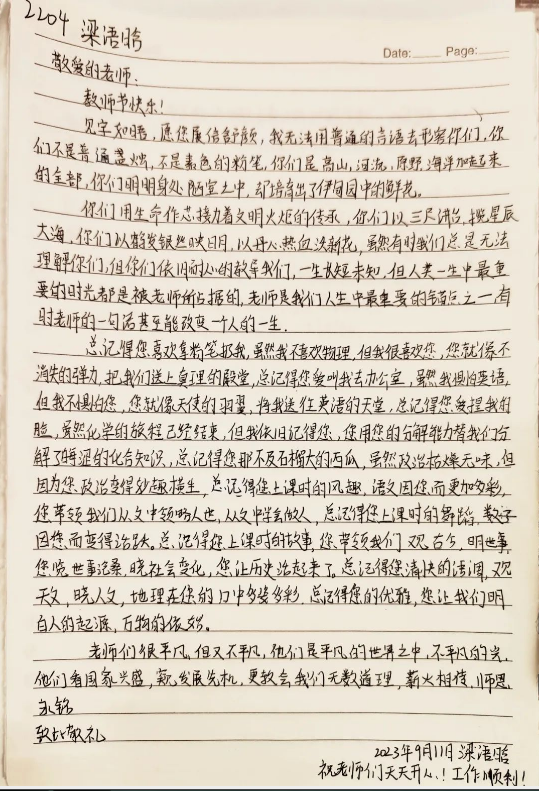 2204 梁语晗
Date: Page:
敬爱的老师:
教师节快乐!
见字如晤,愿您展信舒颜,我无法用普通的言语去形容你们,你
们不是普通蜡烛,不是素色的粉笔,你们是高山,河流,原野,海洋加起来
的全部,你们明明身处陋室之中,却培育出了伊甸园中的鲜花。
你们用生命作芯,接力着文明火炬的传承,你们以三尺讲台,揽星辰
大海,你们以鹤发银丝映日月,以丹心热血沃新花,虽然有时我们总是无法
理解你们,但你们依旧耐心的教导我们,一生长短未知,但人类一生中最重
要的时光都是被老师所占据的,老师是我们人生中最重要的锚点之一,有
时老师的一句话甚至能改变一个人的一生.
总记得您喜欢拿粉笔扔我,虽然我不喜欢物理,但我很喜欢您,您就像不
消失的弹力,把我们送上真理的殿堂,总记得您爱叫我去办公室,虽然我惧怕英语,
但我不惧怕您,您就像天使的羽翼,将我送往英语的天堂,总记得您爱捏我的
脸,虽然化学的旅程已经结束,但我依旧记得您,您用您的分解能力替我们分
解了晦涩的化合知识,总记得您那不及石榴大的西瓜,虽然政治枯燥无味,但
因为您,政治变得妙趣横生,总记得您上课时的风趣,语文因您而更加多彩,
您带领我们从文中领略人世,从文中学会做人,总记得您上课时的舞蹈,数学
因您而变得活跃。总记得您上课时的故事,您带领我们观古今,明世事,
您览世事沉桑,晓社会变化,您让历史活起来了。总记得您清快的语调,观
天文,晓人文,地理在您的口中多姿多彩.总记得您的优雅,您让我们明
白人的起源,万物的依始。
老师们很平凡,但又不平凡,他们是平凡的世界之中,不平凡的光,
他们看国家兴盛,窥发展先机,更教会我们无数道理,薪火相传,师恩
永铭
致此敬礼
2023年9月11日 梁语晗
祝老师们天天开心!工作顺利!